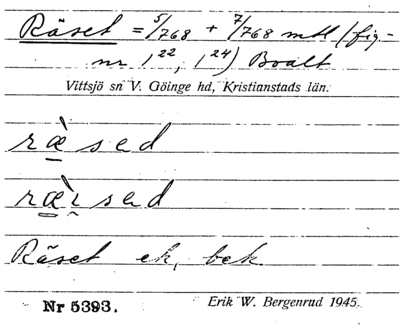 Räset = 5/768 + 7/768 mtl (fig-
nr 1²², 1²⁴) Boalt
Vittsjö sn V. Göinge hd, Kristianstads län.
ræ̀sed
ræ̀ised
Räset ek, bek.
Nr 5393. Erik W. Bergenrud 1945.